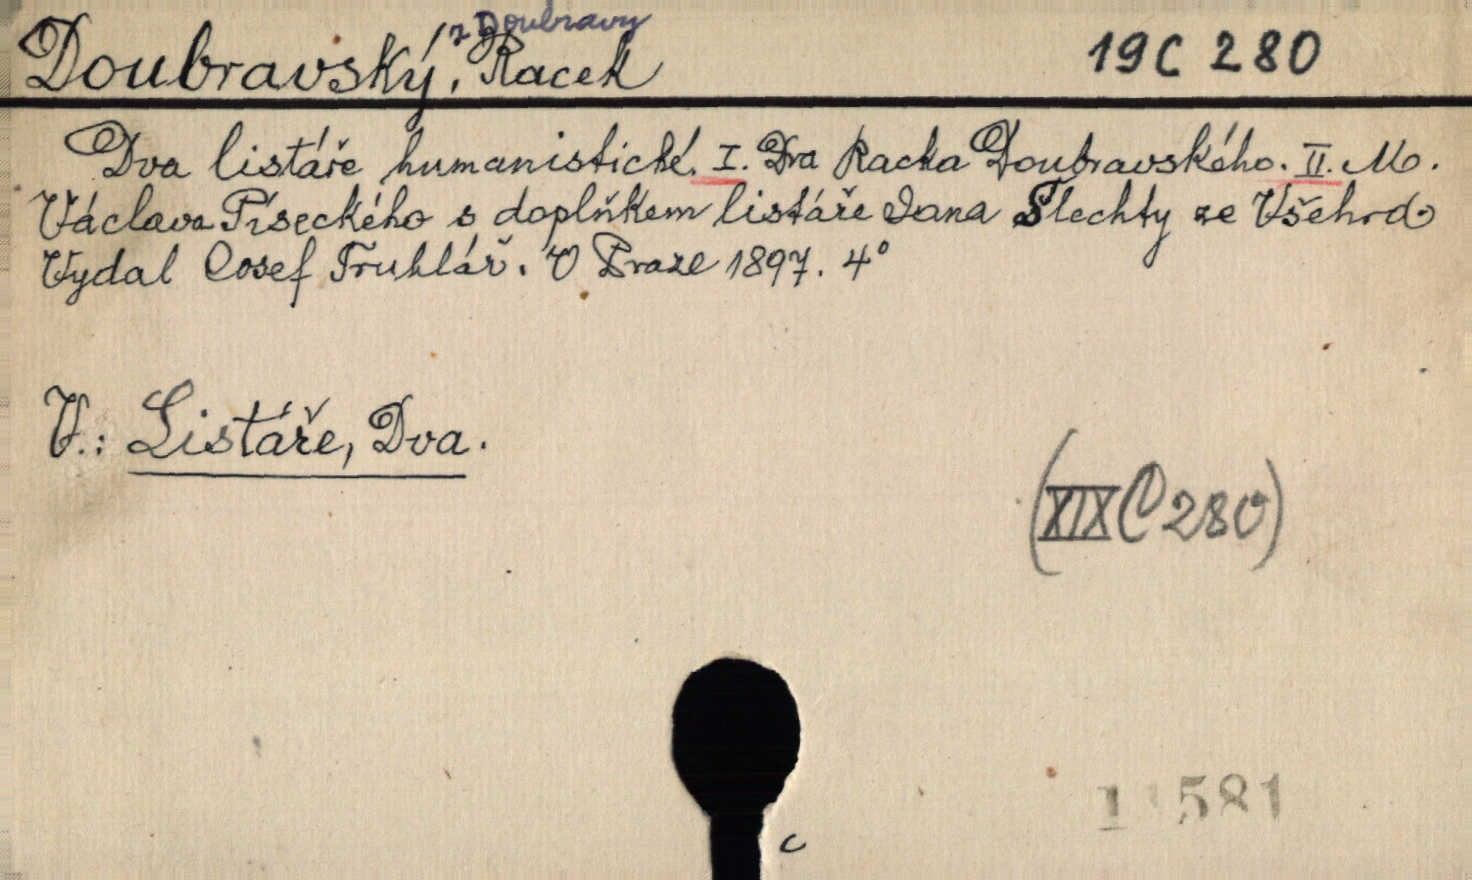 z Doubravy
Doubravský, Racek 19 C 280
Dva listáře humanistické. I. Dra Racka Doubravského. II. M.
Václava Píseckého s doplňkem listáře Jana Šlechty ze Všehrd.
Vydal Josef Truhlář. V Praze 1897. 4°
V.: Listáře, Dva.
(XIX C 280)
1 581
c